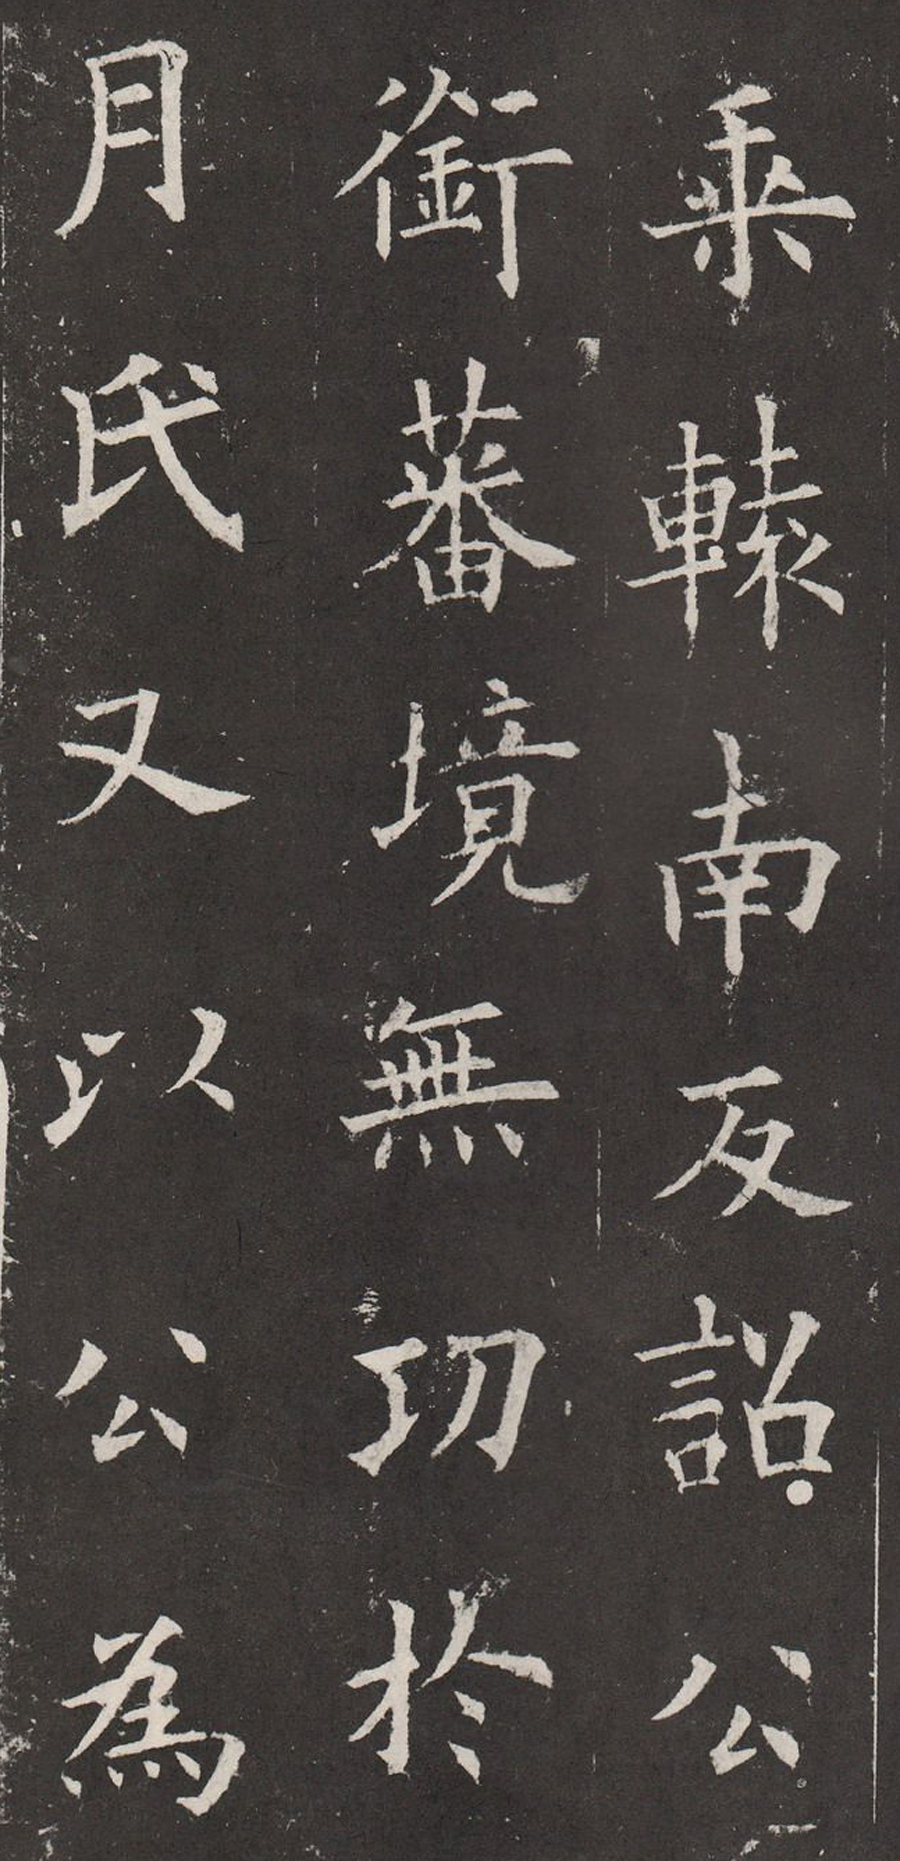 乗轅南反詔公
銜蕃境無功於
月氏又以公為